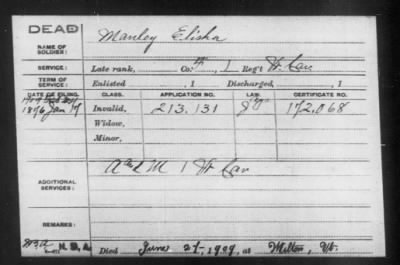 DEAD
NAME OF SOLDIER: Manley Elisha
SERVICE: Late rank, Co. 1 Reg't Vt. Cav
TERM OF SERVICE: Enlisted , 1 Discharged, , 1
DATE OF FILING. CLASS. APPLICATION NO. LAW. CERTIFICATE NO.
1876 Jan 17 Invalid, 213.131 172.068
Widow,
Minor,
ADDITIONAL SERVICES: A and M 1 Vt Cav
REMARKS:
Died June 21-1909, at Milton, Vt.